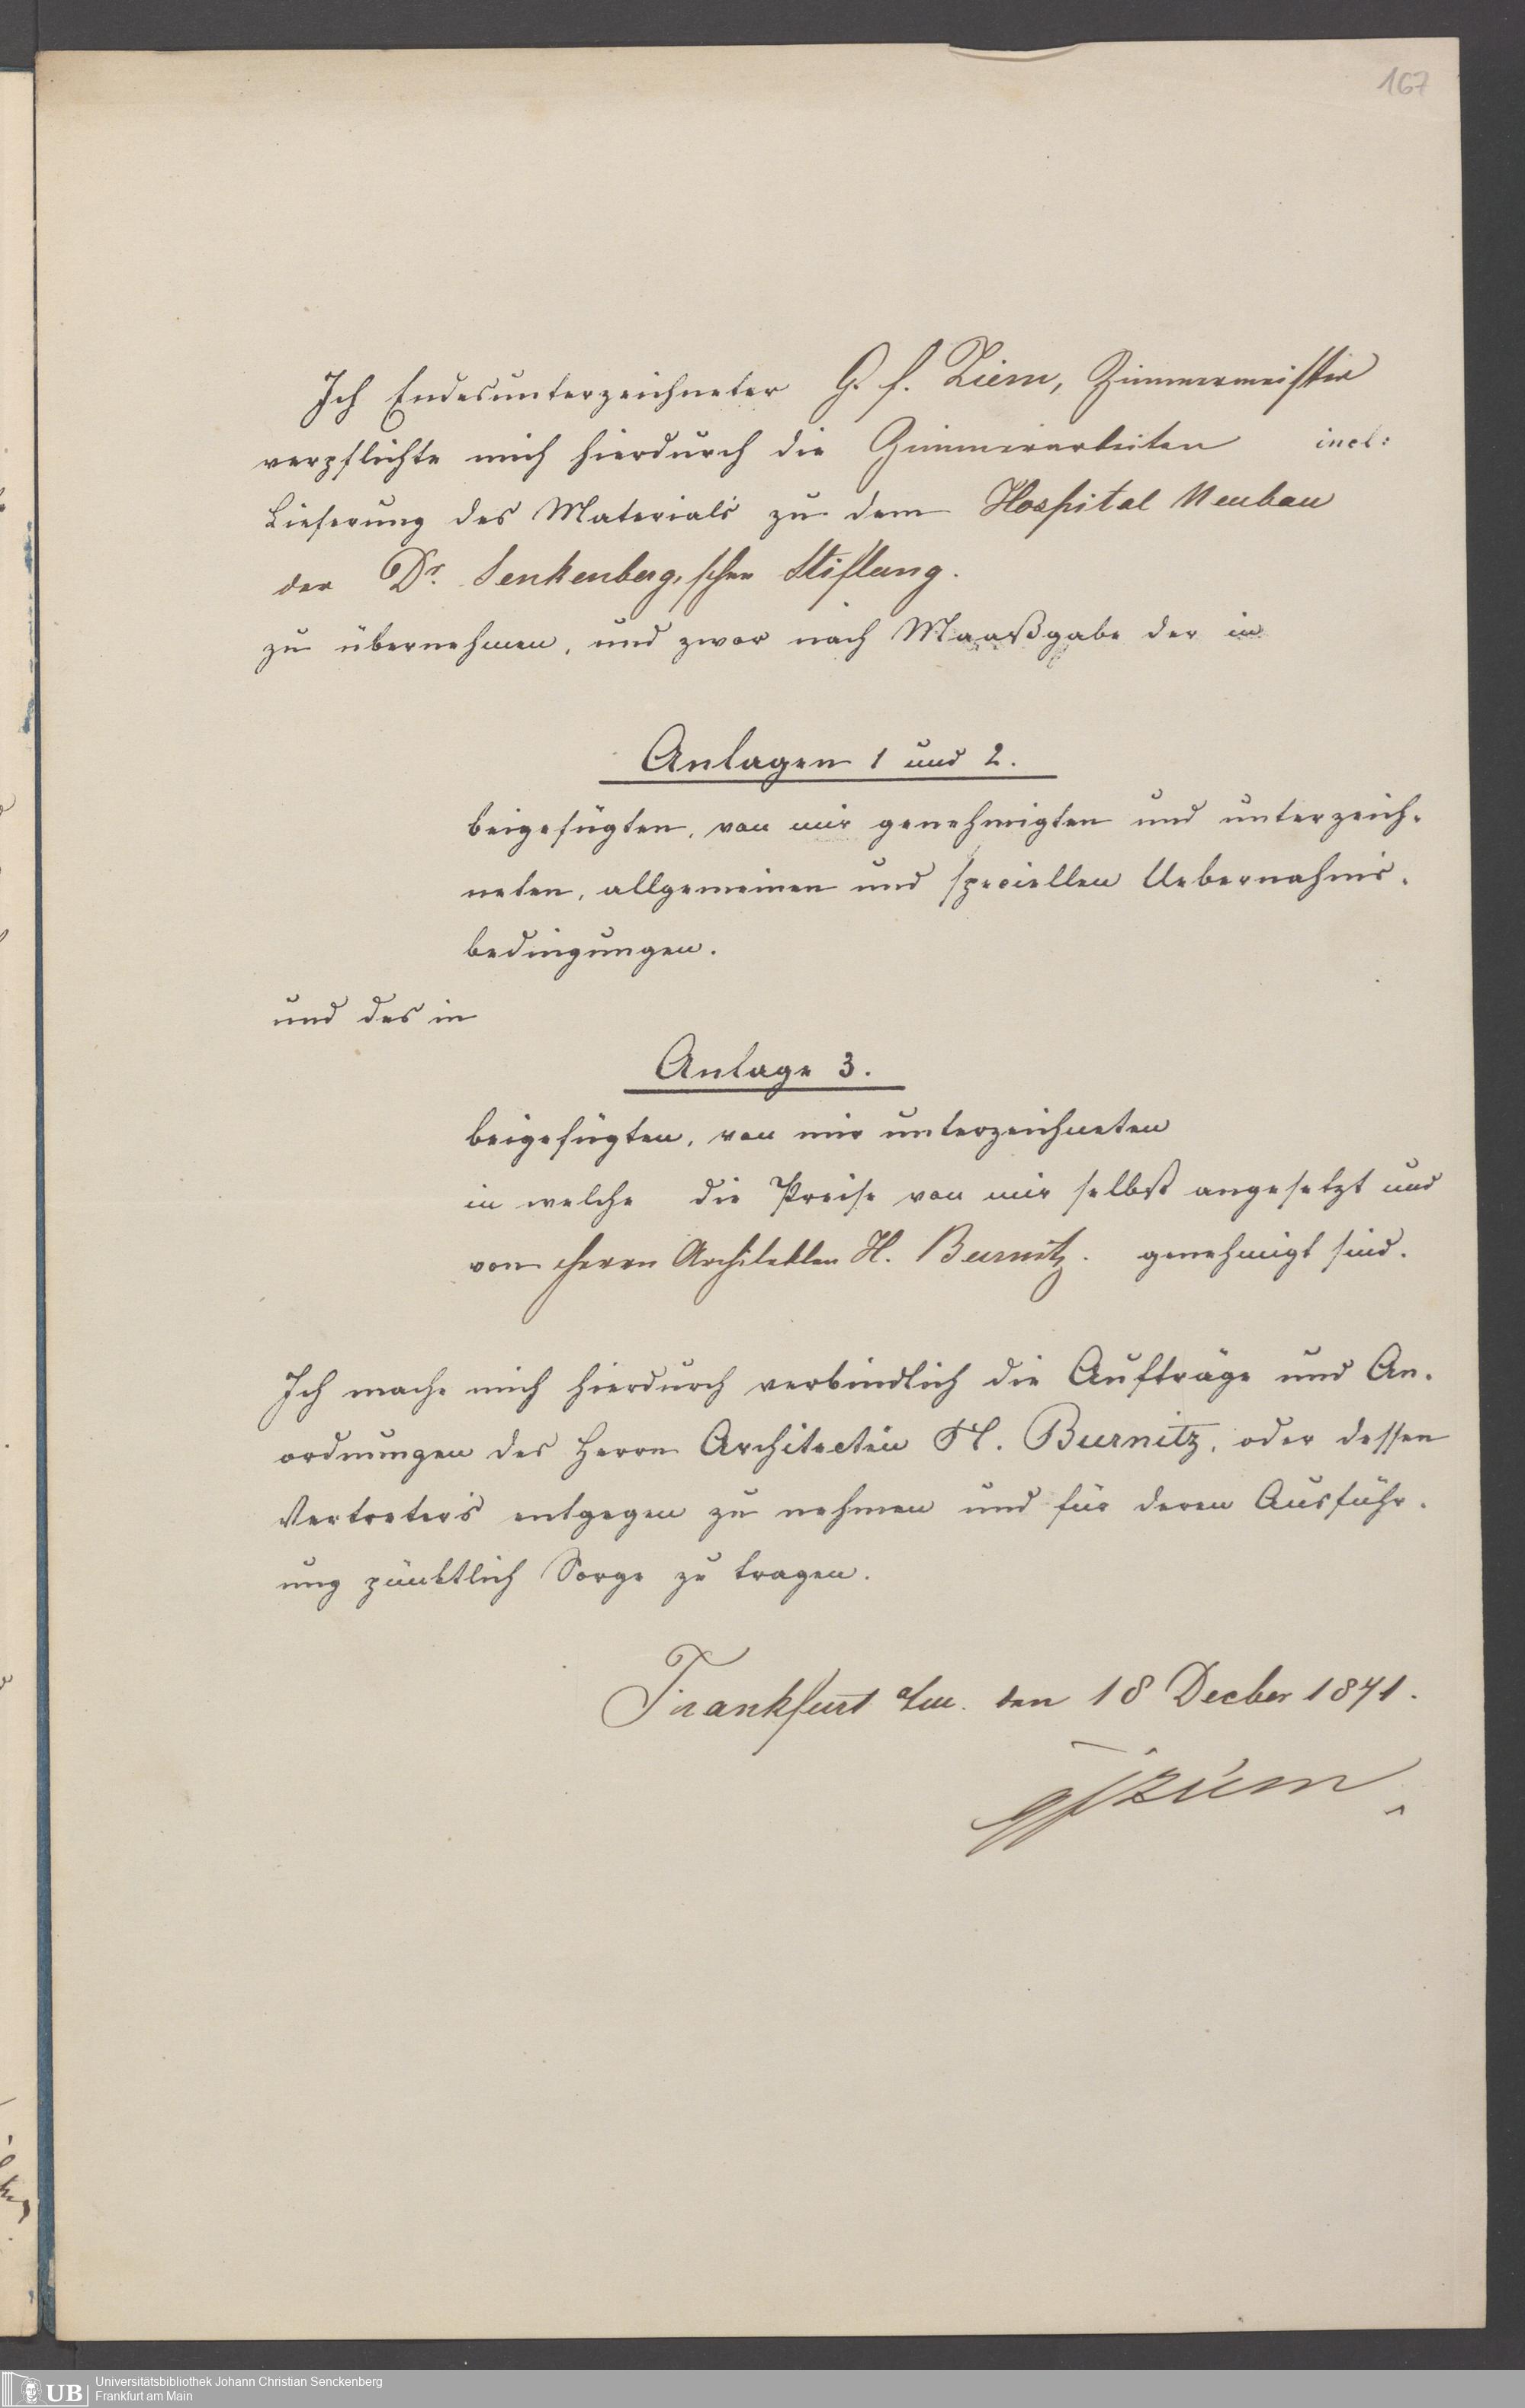 167
Ich Endesunterzeichneter G. F. Ziem, Zimmermeister
verpflichte mich hierdurch die Zimmerarbeiten incl:
Lieferung des Materials zu dem Hospital Neubau
der Dr. Senkenberg'schen Stiftung.
zu übernehmen, und zwar nach Maaßgabe der in
Anlagen 1 und 2.
beigefügten, von mir genehmigten und unterzeich-
neten, allgemeinen und speciellen Uebernahms-
bedingungen.
und des in
Anlage 3.
beigefügten, von mir unterzeichneten
in welche die Preise von mir selbst angesetzt und
von Herrn Architekten H. Burnitz. genehmigt sind.
Ich mache mich hierdurch verbindlich die Aufträge und An-
ordnungen des Herrn Architecten H. Burnitz, oder dessen
Vertreters entgegen zu nehmen und für deren Ausführ-
ung pünktlich Sorge zu tragen.
Frankfurt a/m. den 18 Decber 1871.
GF Ziem
UB
Universitätsbibliothek Johann Christian Senckenberg
Frankfurt am Main